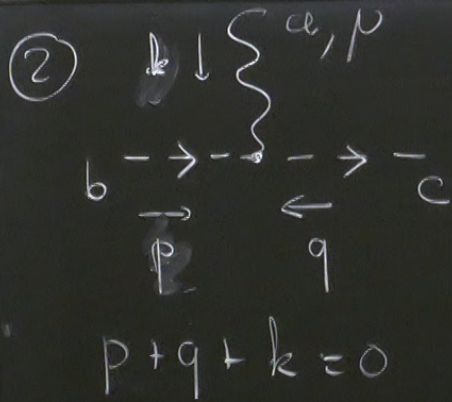 ② k a, μ
b c
p q
p + q + k = 0